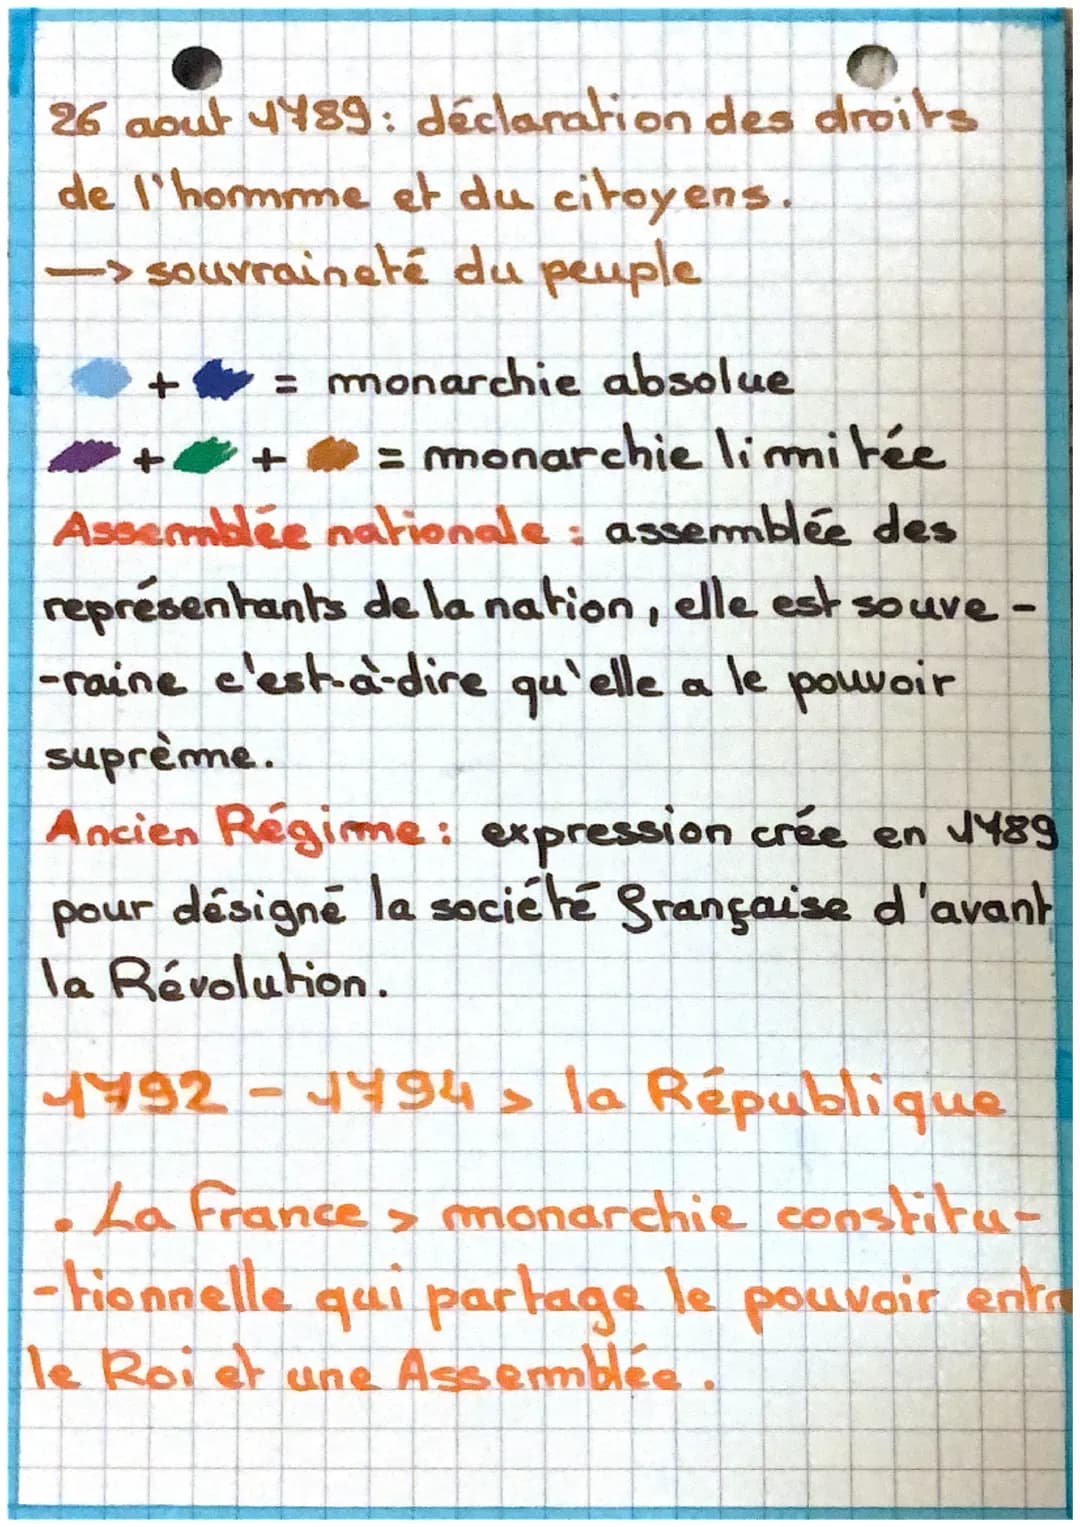 26 aout 1789 : déclaration des droits
de l'hommme et du citoyens.
—> souvraineté du peuple
+ = monarchie absolue
+ + = monarchie limitée
Assemblée nationale : assemblée des
représentants de la nation, elle est souve-
-raine c'est-à-dire qu'elle a le pouvoir
suprème.
Ancien Régime : expression crée en 1789
pour désigné la société française d'avant
la Révolution.
1792 - 1794 > la République
. La France > monarchie constitu-
-tionnelle qui partage le pouvoir entre
le Roi et une Assemblée.